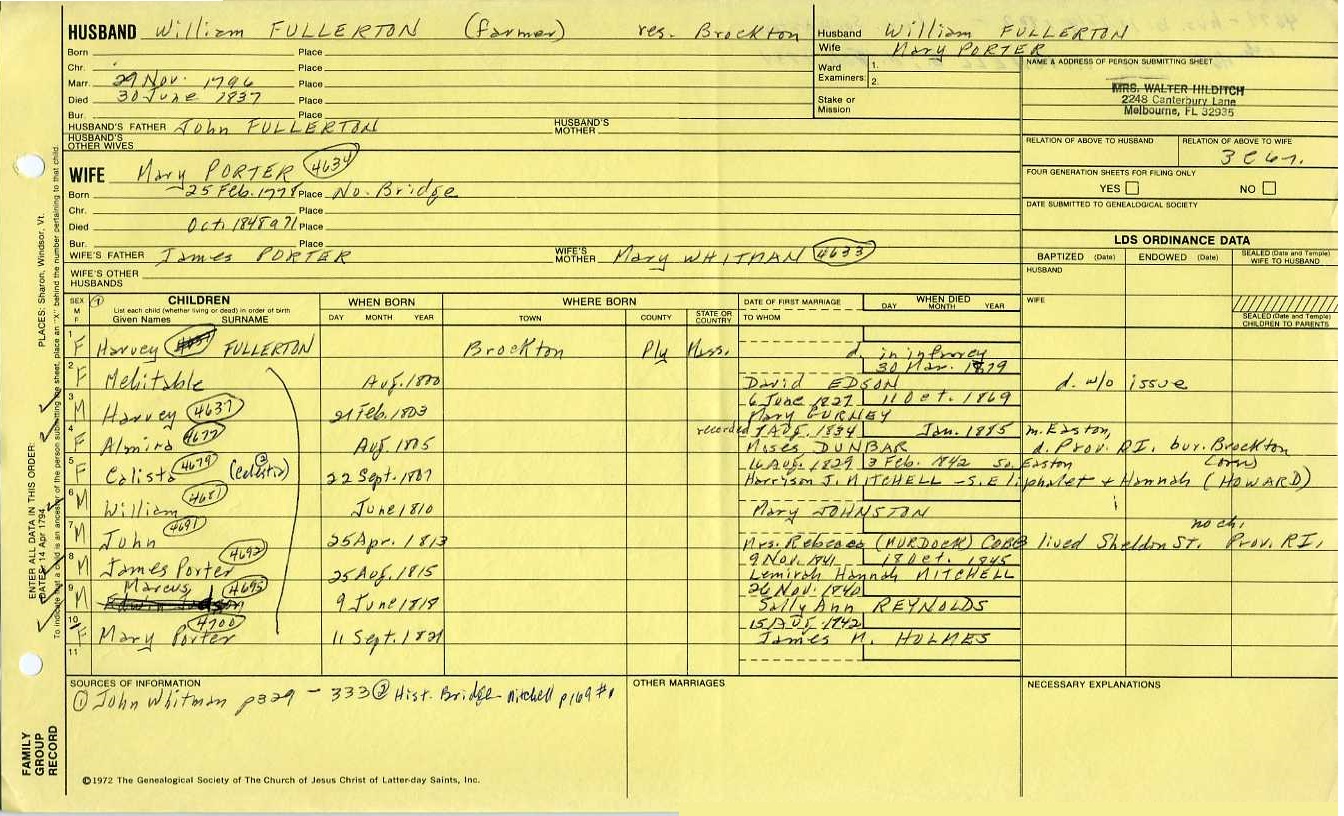 HUSBAND William FULLERTON (farmer) res. Brockton
Born Place
Chr. Place
Marr. 29 Nov. 1796 Place
Died 30 June 1837 Place
Bur. Place
HUSBAND'S FATHER John FULLERTON HUSBAND'S MOTHER
HUSBAND'S OTHER WIVES
Husband William FULLERTON
Wife Mary PORTER
Ward Examiners: 1. 2.
Stake or Mission
NAME & ADDRESS OF PERSON SUBMITTING SHEET
MRS. WALTER HILDITCH
2248 Canterbury Lane
Melbourne, FL 32935
RELATION OF ABOVE TO HUSBAND RELATION OF ABOVE TO WIFE
3C6r.
FOUR GENERATION SHEETS FOR FILING ONLY
YES NO
DATE SUBMITTED TO GENEALOGICAL SOCIETY
WIFE Mary PORTER 4634
Born 25 Feb. 1778 Place No. Bridge
Chr. Place
Died Oct. 1848 a 71 Place
Bur. Place
WIFE'S FATHER James PORTER WIFE'S MOTHER Mary WHITMAN 4633
WIFE'S OTHER HUSBANDS
LDS ORDINANCE DATA
BAPTIZED (Date) ENDOWED (Date) SEALED (Date and Temple) WIFE TO HUSBAND
HUSBAND
WIFE
SEALED (Date and Temple) CHILDREN TO PARENTS
SEX M F
CHILDREN
List each child (whether living or dead) in order of birth
Given Names SURNAME
WHEN BORN
DAY MONTH YEAR
WHERE BORN
TOWN COUNTY STATE OR COUNTRY
DATE OF FIRST MARRIAGE
TO WHOM
WHEN DIED
DAY MONTH YEAR
1 F Harvey FULLERTON Brockton Ply Mass. d. in infancy
30 Mar. 1879
2 F Mehitable Aug. 1800 David EDSON d. w/o issue
6 June 1827 11 Oct. 1869
3 M Harvey 4637 21 Feb. 1803 Mary GURNEY
recorded 7 Aug. 1834 Jan. 1885 m. Easton,
4 F Almira 4677 Aug. 1805 Moses DUNBAR d. Prov. RI, bur. Brockton
16 Aug. 1829 3 Feb. 1842 So. Easton
5 F Calista 4679 (Celestia) 22 Sept. 1807 Harrison J. MITCHELL - S. Eliphalet + Hannah (HOWARD)
6 M William 4687 June 1810 Mary JOHNSTON
no ch.
7 M John 4691 25 Apr. 1813 Mrs. Rebecca (MURDOCK) COBB lived Sheldon St. Prov. RI,
9 Nov. 1841 18 Oct. 1845
8 M James Porter 4692 25 Aug. 1815 Lemirah Hannah MITCHELL
26 Nov. 1840
9 M Marcus 4695 9 June 1818 Sally Ann REYNOLDS
15 Aug. 1842
10 F Mary Porter 4700 11 Sept. 1821 James H. HOLMES
11
SOURCES OF INFORMATION
① John Whitman p329 - 333 ② Hist. Bridge - Mitchell p169 #1
OTHER MARRIAGES
NECESSARY EXPLANATIONS
©1972 The Genealogical Society of The Church of Jesus Christ of Latter-day Saints, Inc.
FAMILY GROUP RECORD
ENTER ALL DATA IN THIS ORDER:
DATES: 14 Apr 1794
PLACES: Sharon, Windsor, Vt.
To indicate that a child is an ancestor of the person submitting the sheet, place an "X" behind the number pertaining to that child.